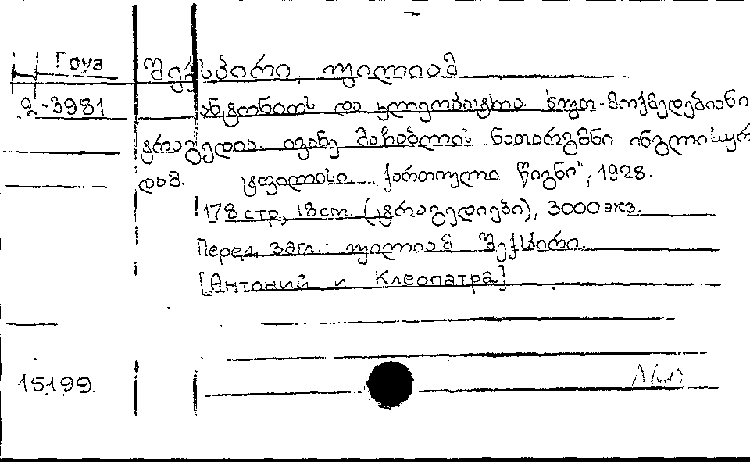 Гоуа
შექსპირი, უილიამ
2-3981
ანტონიოს და კლეოპატრა ხუთ-მოქმედებიანი
ტრაგედია. ივანე მაჩაბლის ნათარგმნი ინგლისურ
დამ. ტფილისი. ქართული წიგნი", 1928.
178 стр, 18 cm. (ტრაგედიები), 3000 экз.
Перед. загл.: უილიამ შექსპირი.
[Антоний и Клеопатра]
15199.